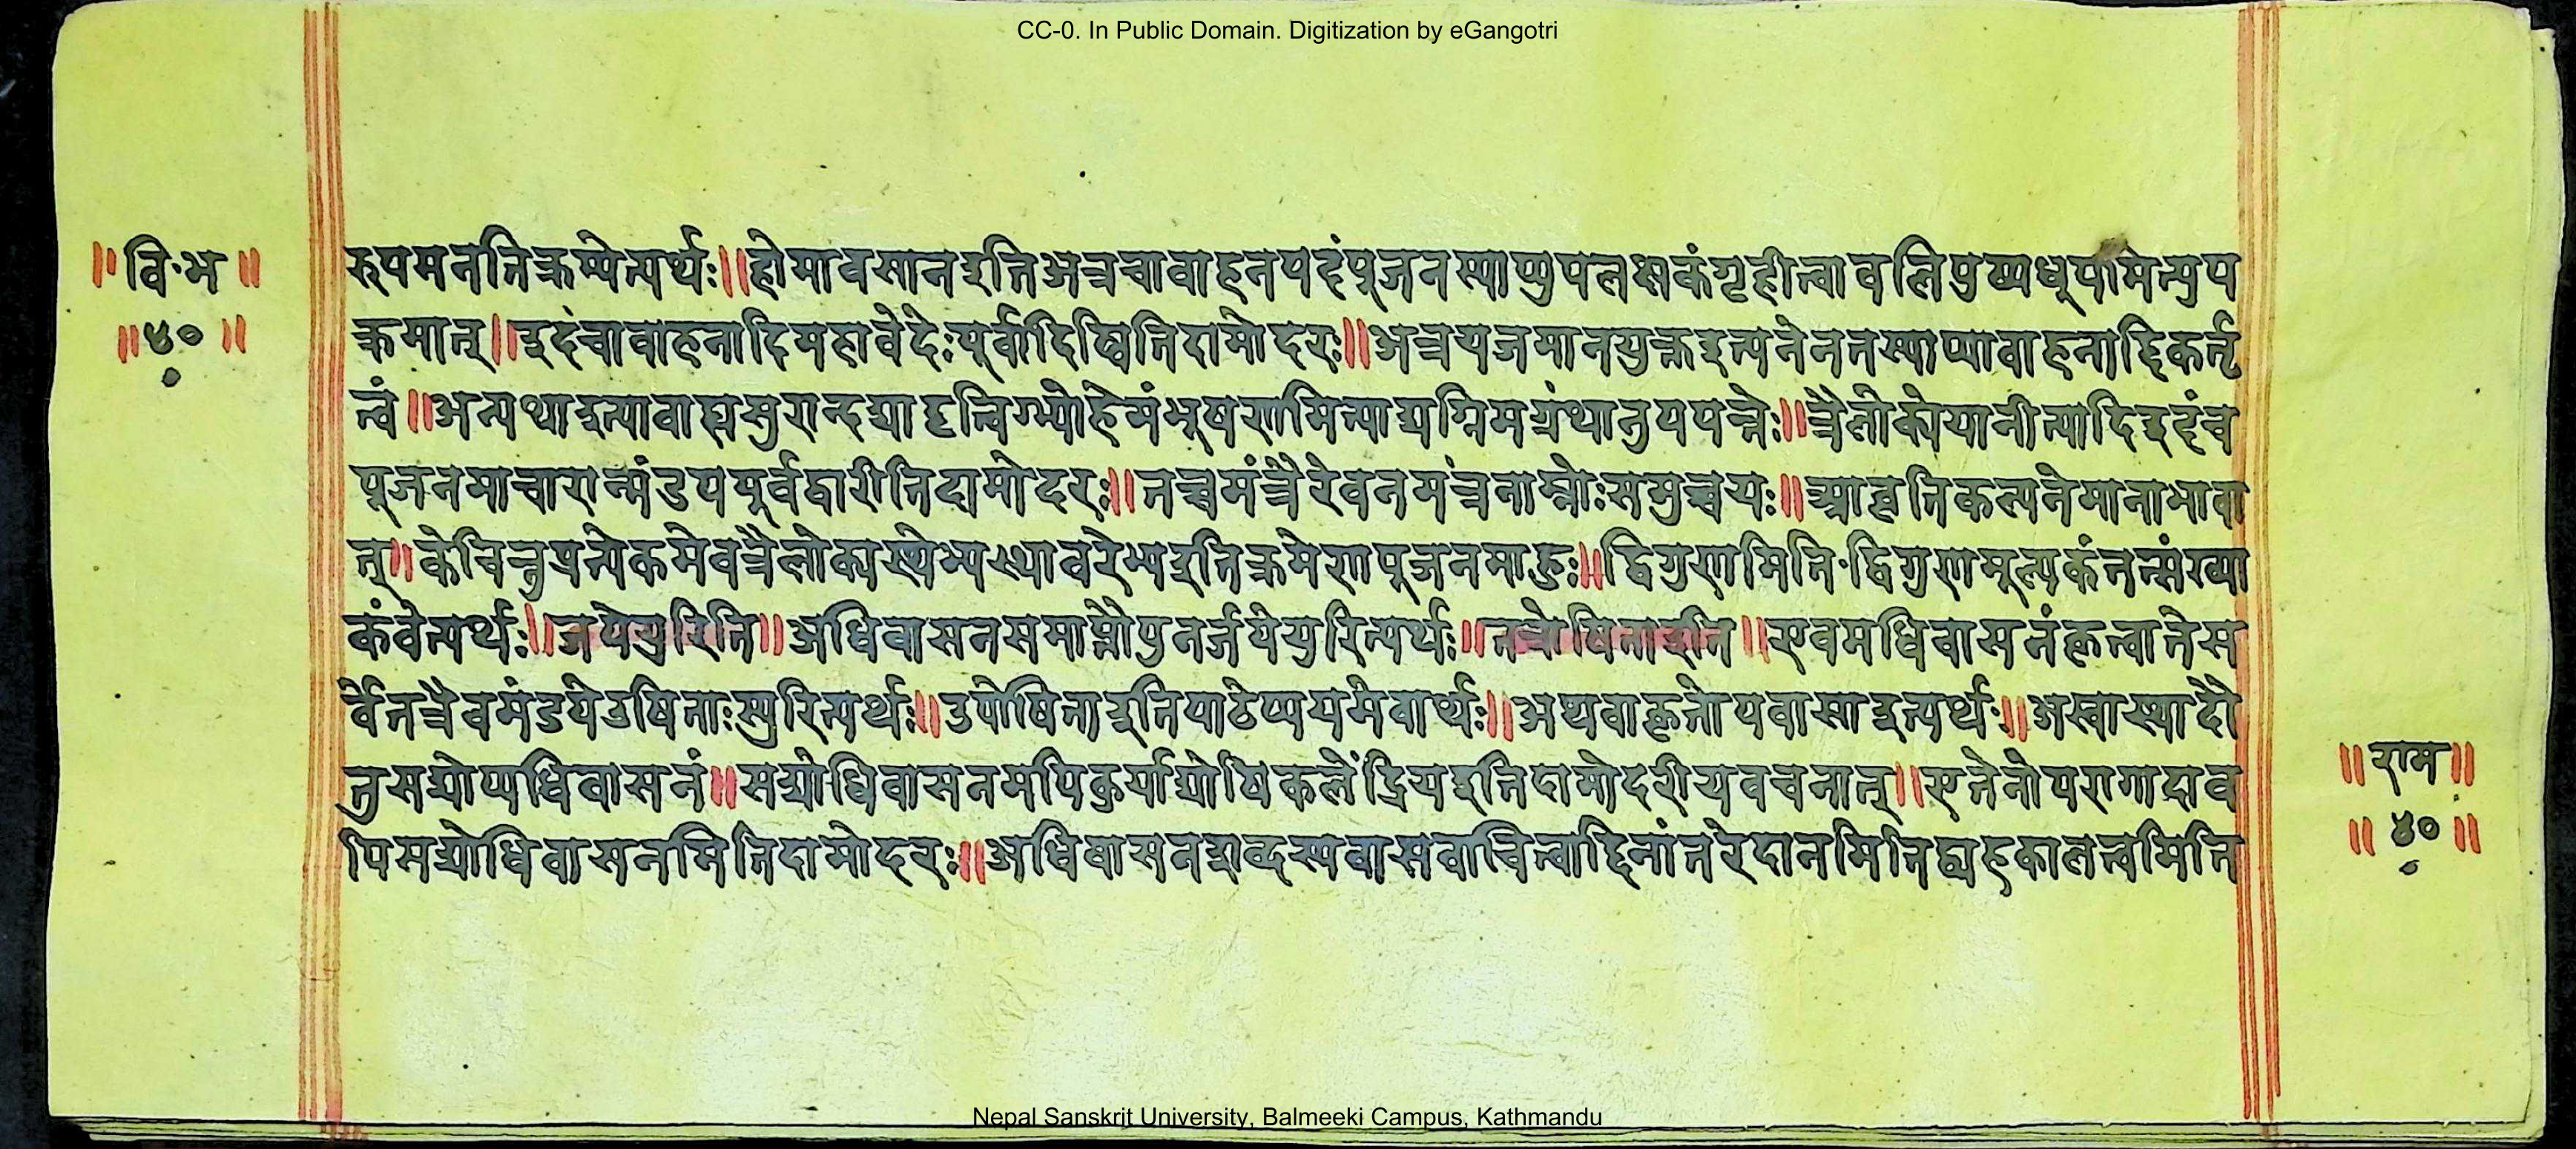 CC-0. In Public Domain. Digitization by eGangotri
॥वि·भ॥
॥४०॥
रूपमनतिक्रम्येत्यर्थः॥होमावसानइतिअत्रचावाहनपदंपूजनस्याप्युपलक्षकंगृहीत्वावलिपुष्पधूपामेत्युप
क्रमात्॥इदंचावाहनादिमहावेदेःपूर्वादिष्वितिदामोदरः॥अत्रयजमानयुक्तइत्यनेनतस्याप्यावाहनादिकर्तृ
त्वं॥अन्यथाइत्यावाह्यसुरान्दद्यादृत्विग्भ्योहेमंभूषणमित्याद्यग्रिमग्रंथानुपपत्तेः॥त्रैलोक्येयानीत्यादिइदंच
पूजनमाचारान्मंडपपूर्वद्वारीतिदामोदरः॥तच्चमंत्रैरेवनमंत्रनाम्नोःसमुच्चयः॥आवृत्तिकल्पनेमानाभावा
त्॥केचित्तुप्रत्येकमेवत्रैलोक्यस्थेभ्यस्थावरेभ्यइतिक्रमेणपूजनमाहुः॥द्विगुणमिति·द्विगुणमूल्यकंतत्संख्या
कंवेत्यर्थः॥जपेयुरिति॥अधिवासनसमाप्तौपुनर्जपेयुरित्यर्थः॥तत्रोषिताइति॥एवमधिवासनंकृत्वातेस
र्वेतत्रैवमंडपेउषिताःस्युरित्यर्थः॥उपोषिताइतिपाठेप्ययमेवार्थः॥अथवाकृतोपवासाइत्यर्थः॥अस्वास्थ्यादौ
तुसद्योप्यधिवासनं॥सद्योधिवासनमपिकुर्याद्योविकलेंद्रियइतिदामोदरीयवचनात्॥एतेनोपरागादाव
पिसद्योधिवासनमितिदामोदरः॥अधिवासनशब्दस्यवासवाचित्वाद्दिनांतरेदानमितिद्व्यहकालत्वमिति
॥राम॥
॥४०॥
Nepal Sanskrit University, Balmeeki Campus, Kathmandu